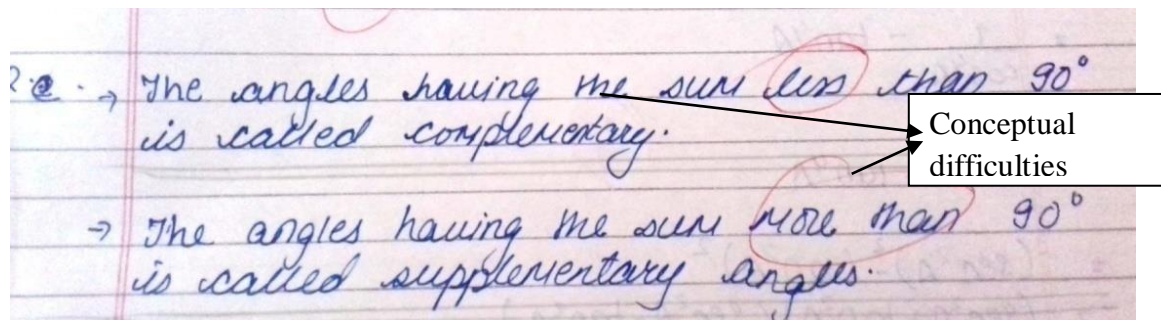 → The angles having the sum less than 90°
is called complementary.
Conceptual
difficulties
→ The angles having the sum more than 90°
is called supplementary angles.